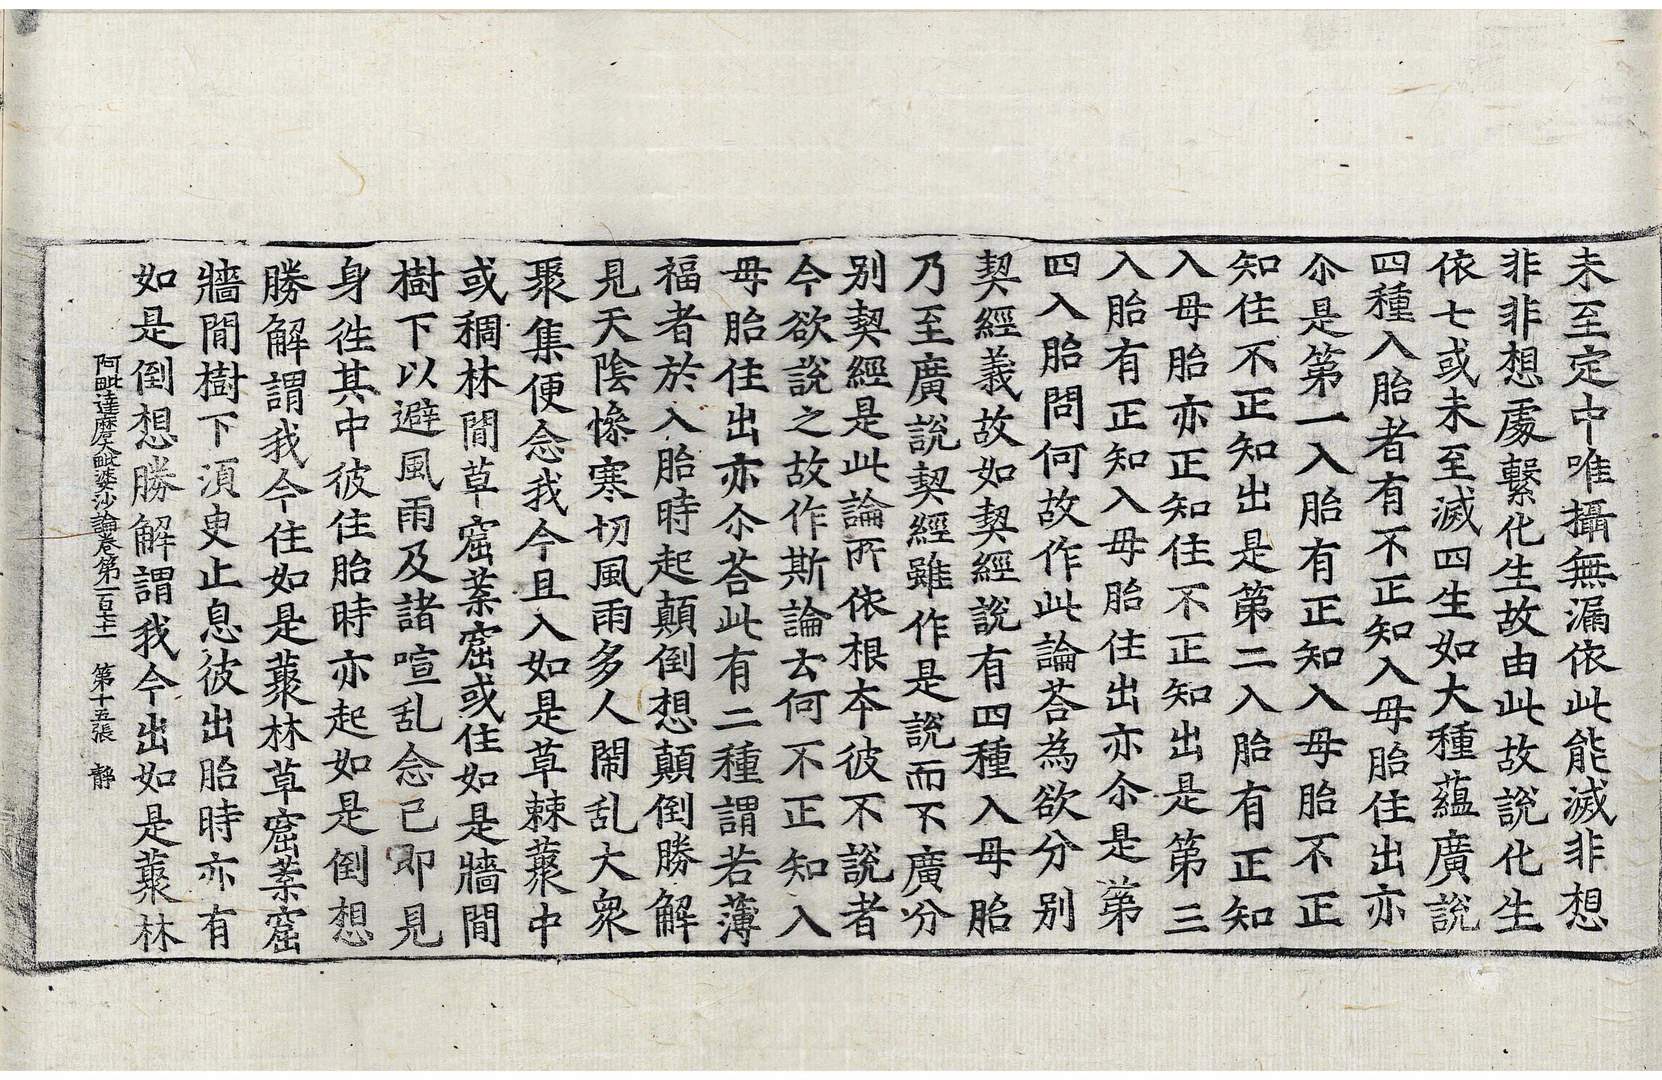 未至定中唯攝無漏依此能滅非想
非非想處繫化生故由此故說化生
依七或未至滅四生如大種蘊廣說
四種入胎者有不正知入毋胎住出亦
尒是第一入胎有正知入毋胎不正
知住不正知出是第二入胎有正知
入毋胎亦正知住不正知出是第三
入胎有正知入毋胎住出亦尒是第
四入胎問何故作此論荅為欲分別
契經義故如契經說有四種入毋胎
乃至廣說契經雖作是說而不廣分
別契經是此論所依根本彼不說者
今欲說之故作斯論云何不正知入
毋胎住出亦尒荅此有二種謂若薄
福者於入胎時起顛倒想顛倒勝解
見天陰慘寒切風雨多人閙乱大衆
聚集便念我今且入如是草棘藂中
或稠林閒草窟葉窟或住如是牆閒
樹下以避風雨及諸喧乱念已即見
身徃其中彼住胎時亦起如是倒想
勝解謂我今住如是藂林草窟葉窟
牆閒樹下湏臾止息彼出胎時亦有
如是倒想勝解謂我今出如是藂林
阿毗達磨大毗婆沙論卷第一百七十一 第十五張 靜